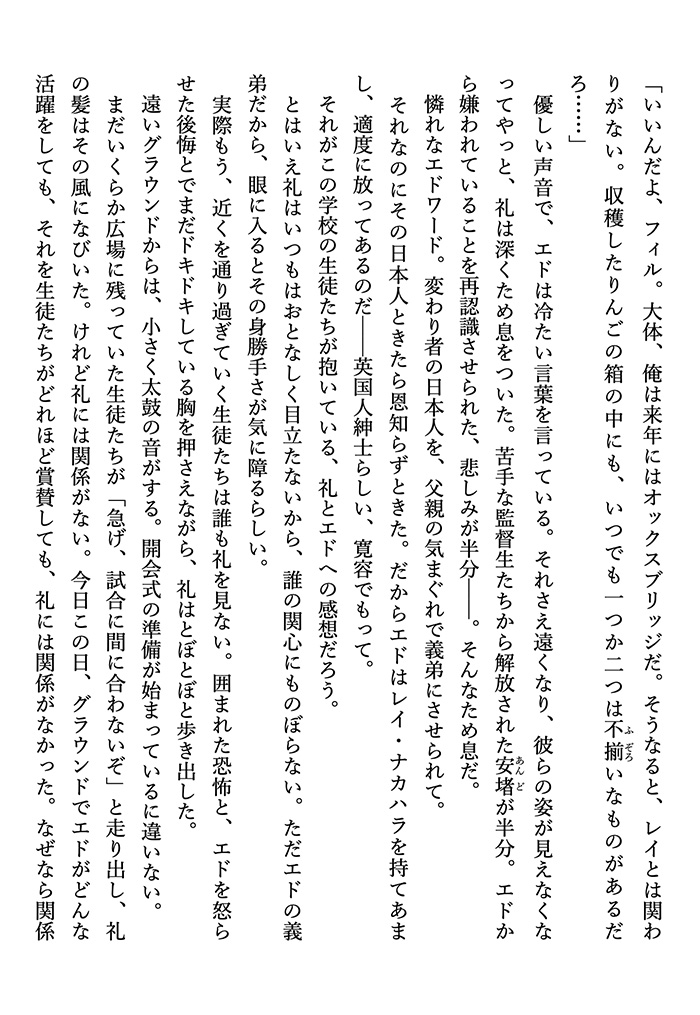 「いいんだよ、フィル。大体、俺は来年にはオックスブリッジだ。そうなると、レイとは関わ
りがない。収穫したりんごの箱の中にも、いつでも一つか二つは不揃いなものがあるだ
ろ……」
優しい声音で、エドは冷たい言葉を言っている。それさえ遠くなり、彼らの姿が見えなくな
ってやっと、礼は深くため息をついた。苦手な監督生たちから解放された安堵が半分。エドか
ら嫌われていることを再認識させられた、悲しみが半分――。そんなため息だ。
憐れなエドワード。変わり者の日本人を、父親の気まぐれで義弟にさせられて。
それなのにその日本人ときたら恩知らずときた。だからエドはレイ・ナカハラを持てあま
し、適度に放ってあるのだ――英国人紳士らしい、寛容でもって。
それがこの学校の生徒たちが抱いている、礼とエドへの感想だろう。
とはいえ礼はいつもはおとなしく目立たないから、誰の関心にものぼらない。ただエドの義
弟だから、眼に入るとその身勝手さが気に障るらしい。
実際もう、近くを通り過ぎていく生徒たちは誰も礼を見ない。囲まれた恐怖と、エドを怒ら
せた後悔とでまだドキドキしている胸を押さえながら、礼はとぼとぼと歩き出した。
遠いグラウンドからは、小さく太鼓の音がする。開会式の準備が始まっているに違いない。
まだいくらか広場に残っていた生徒たちが「急げ、試合に間に合わないぞ」と走り出し、礼
の髪はその風になびいた。けれど礼には関係がない。今日この日、グラウンドでエドがどんな
活躍をしても、それを生徒たちがどれほど賞賛しても、礼には関係がなかった。なぜなら関係